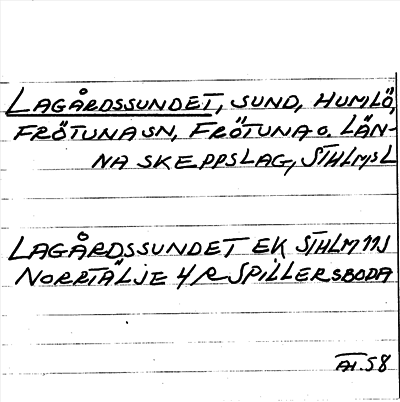 LAGÅRDSSUNDET, SUND, HUMLÖ,
FRÖTUNA SN, FRÖTUNA O. LÄN-
NA SKEPPSLAG, STHLMS L
LAGÅRDSSUNDET EK STHLM 11J
NORRTÄLJE 4/R SPILLERSBODA
58